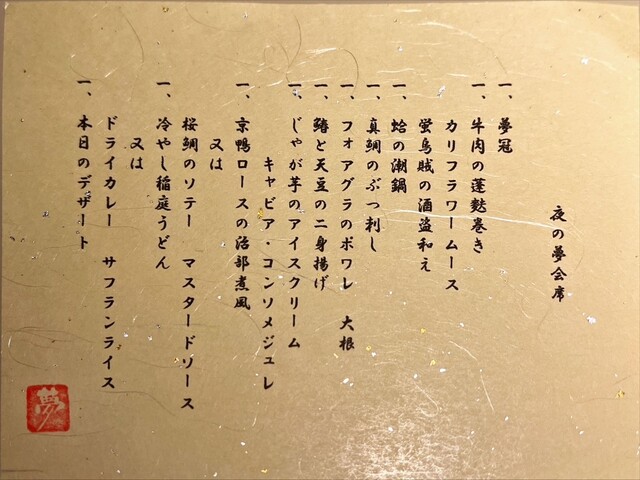 夜の夢会席
一、夢冠
一、牛肉の蓬麩巻き
カリフラワームース
蛍烏賊の酒盗和え
一、蛤の潮鍋
一、真鯛のぶっ刺し
一、フォアグラのポワレ 大根
一、鰆と天豆の二身揚げ
一、じゃが芋のアイスクリーム
キャビア・コンソメジュレ
一、京鴨ロースの治部煮風
又は
桜鯛のソテー マスタードソース
一、冷やし稲庭うどん
又は
ドライカレー サフランライス
一、本日のデザート
夢